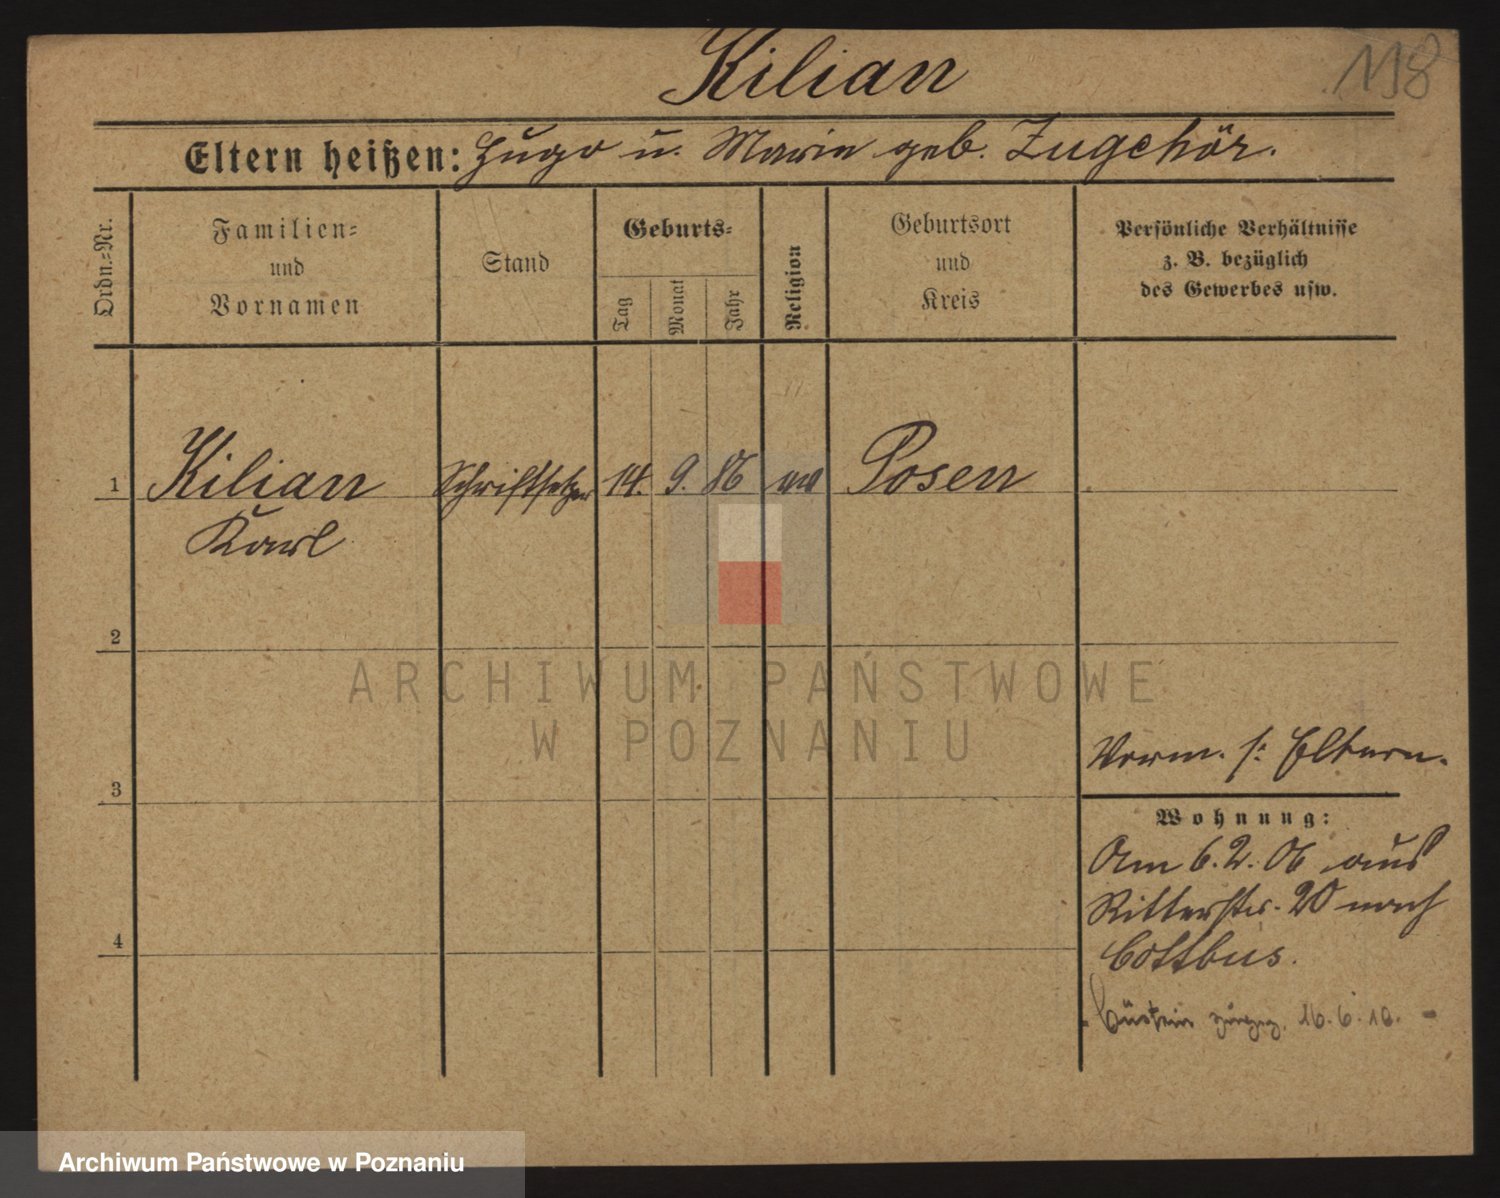 Kilian
118
Eltern heißen: Hugo u. Marie geb. Zugehör.
Ordn.-Nr.
Familien-
und
Vornamen
Stand
Geburts-
Tag
Monat
Jahr
Religion
Geburtsort
und
Kreis
Persönliche Verhältnisse
z. B. bezüglich
des Gewerbes usw.
1 Kilian Schriftsetzer 14. 9. 86 ev Posen
Karl
2
ARCHIWUM PAŃSTWOWE
W POZNANIU
Verm. s: Eltern.
3
Wohnung:
Am 6.2.06 aus
Ritterstr. 20 nach
Cottbus.
4
zurück. 16.6.10.
Archiwum Państwowe w Poznaniu